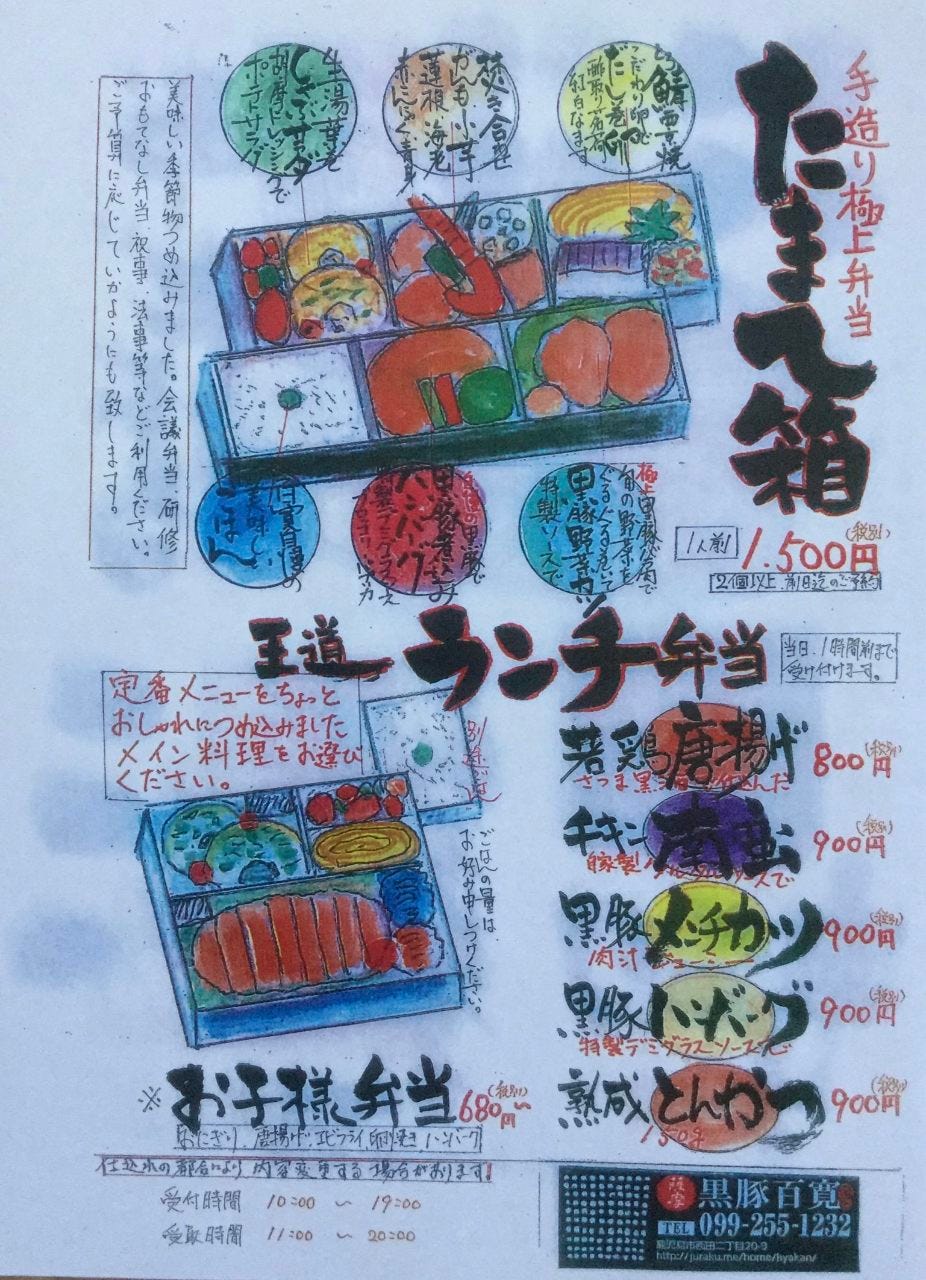 手造り極上弁当
たまて箱
1人前
1.500円
(税別)
2個以上、前日迄のご予約
鯖西京焼
こだわり卵の
だし巻卵
焚き合せ
がんも小芋
蓮根 海老
赤こんにゃく 青身
生湯葉と
しゃぶサラダ
胡麻ドレッシングで
ポテトサラダ
美味しい季節物つめ込みました。会議弁当、研修
おもてなし弁当、祝事、法事等などご利用ください。
ご予算に応じていかようにも致します。
極上黒豚バラ肉で
旬の野菜を
ぐるぐる巻いて
黒豚野菜巻
特製ソースで
黒豚煮込み
ハンバーグ
美味しい
ごはん
王道 ランチ弁当
当日、1時間前まで
受け付けます。
定番メニューをちょっと
おしゃれにつめ込みました
メイン料理をお選び
ください。
別途ごはん
ごはんの量は、
お好み申しつけください。
若鶏唐揚げ
800円
(税別)
チキン南蛮
900円
(税別)
黒豚メンチカツ
900円
(税別)
肉汁ジューシー
黒豚ハンバーグ
900円
(税別)
特製デミグラスソースで
熟成とんかつ
900円
(税別)
150g
※お子様弁当
680円〜
(税別)
おにぎり、唐揚げ、エビフライ、卵焼き、ハンバーグ
仕込みの都合により、内容変更する場合があります!
受付時間 10:00 〜 19:00
受取時間 11:00 〜 20:00
黒豚百寛
TEL 099-255-1232
鹿児島市西田二丁目20-9
http://juraku.me/home/hyakan/